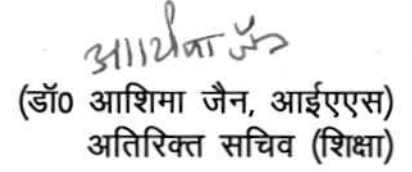 आशिमा जैन
(डॉ0 आशिमा जैन, आईएएस)
अतिरिक्त सचिव (शिक्षा)